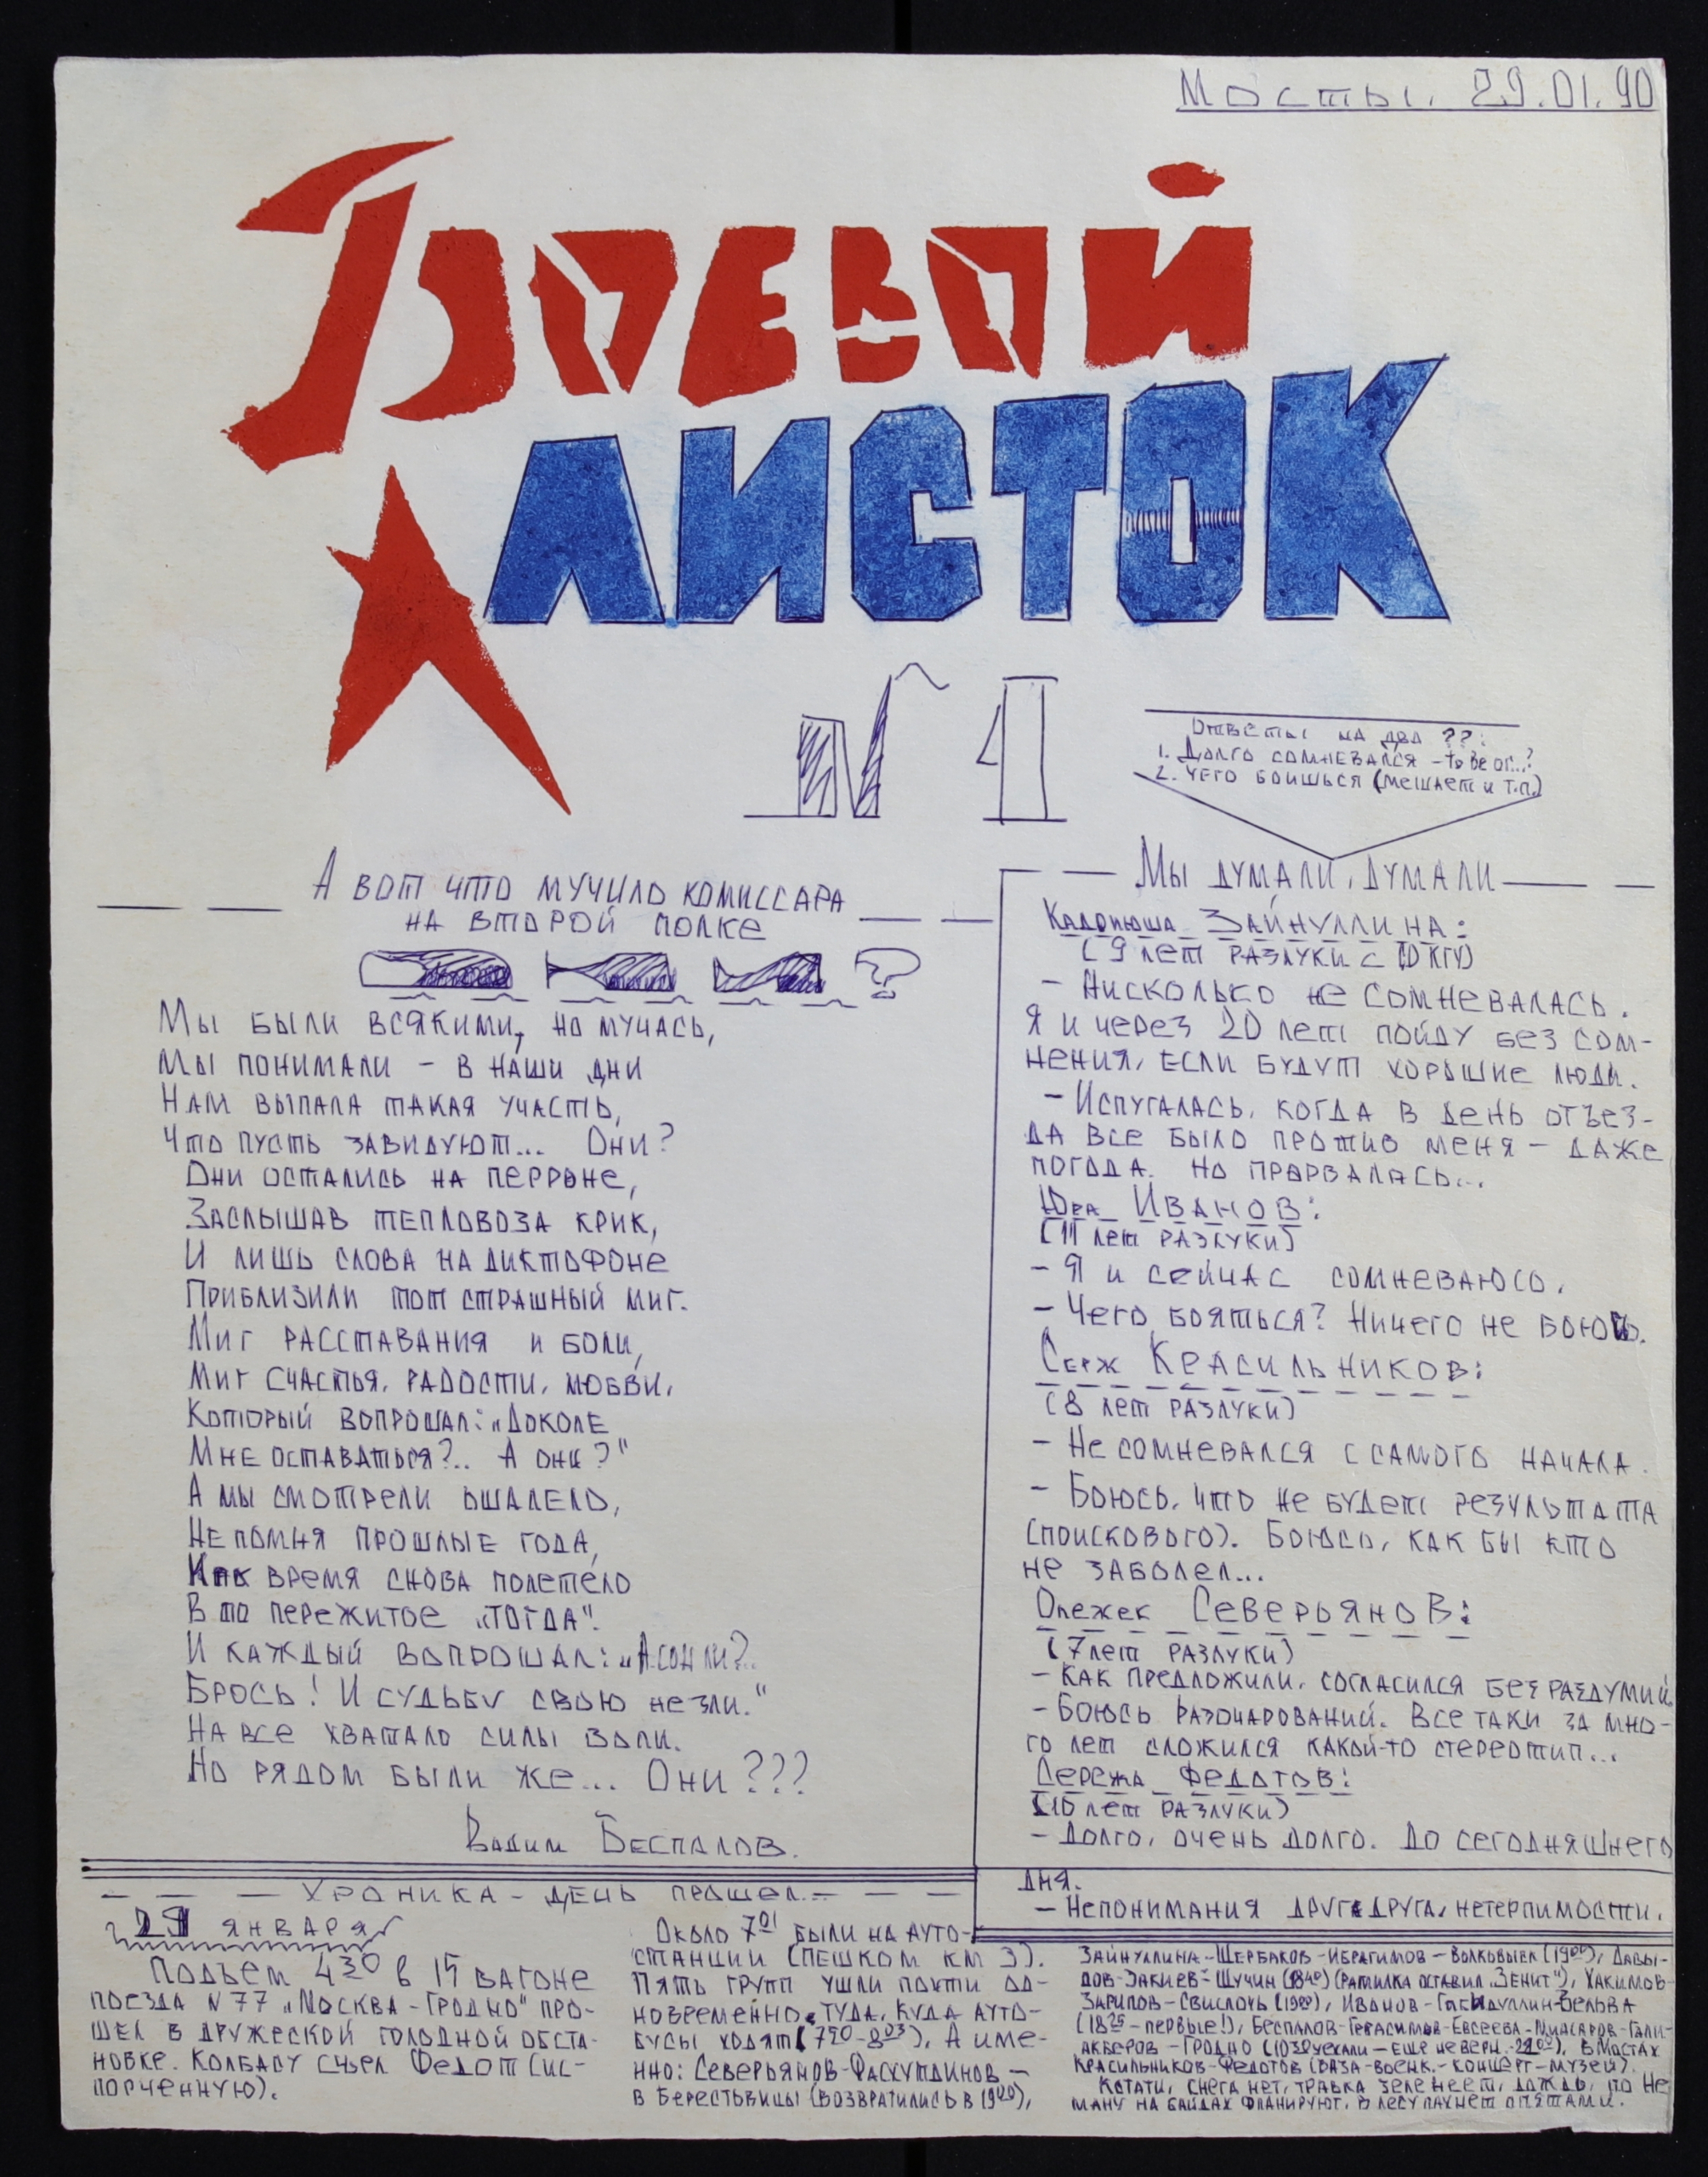 Мосты. 29.01.90
БОЕВОЙ
ЛИСТОК
N 1
Ответы на два ??:
1. Долго сомневался – to be or...?
2. Чего боишься (мешает и т.п.)
А вот что мучило комиссара
на второй полке
?
Мы были всякими, но мучась,
Мы понимали – в наши дни
Нам выпала такая участь,
Что пусть завидуют... Они?
Они остались на перроне,
Заслышав тепловоза крик,
И лишь слова на диктофоне
Приблизили тот страшный миг.
Миг расставания и боли,
Миг счастья, радости, любви,
Который вопрошал: „Доколе
Мне оставаться?.. А они?"
А мы смотрели ошалело,
Не помня прошлые года,
Как время снова полетело
В то пережитое „тогда".
И каждый вопрошал: „А сон ли?..
Брось! И судьбу свою не зли."
На все хватало силы воли.
Но рядом были же... Они???
Вадим Беспалов.
Мы думали, думали
Кадрюша Зайнуллина:
(9 лет разлуки с ФКГУ)
– Нисколько не сомневалась.
Я и через 20 лет пойду без сом-
нения, если будут хорошие люди.
– Испугалась, когда в день отъез-
да все было против меня – даже
погода. Но прорвалась...
Юра Иванов:
(11 лет разлуки)
– Я и сейчас сомневаюсь.
– Чего бояться? Ничего не боюсь.
Серж Красильников:
(8 лет разлуки)
– Не сомневался с самого начала.
– Боюсь, что не будет результата
(поискового). Боюсь, как бы кто
не заболел...
Олежек Северьянов:
(7 лет разлуки)
– Как предложили, согласился без раздумий.
– Боюсь разочарований. Все таки за мно-
го лет сложился какой-то стереотип...
Сережа Федотов:
(10 лет разлуки)
– Долго, очень долго. До сегодняшнего
дня.
– Непонимания друг друга, нетерпимости.
Хроника – день прошел...
29 января
Подъем 4 30 в 15 вагоне
поезда N 77 „Москва – Гродно" про-
шел в дружеской голодной обста-
новке. Колбасу съел Федот (ис-
порченную).
Около 7 01 были на авто-
станции (пешком км 3).
Пять групп ушли почти од-
новременно, туда, куда авто-
бусы ходят (7 20 – 8 03). А име-
нно: Северьянов-Фасхутдинов –
в Берестовицы (возвратились в 19 00),
Зайнулина-Щербаков-Ибрагимов – Волковыск (19 00), Давы-
дов-Закиев – Щучин (18 40) (Рамилка оставил „Зенит"), Хакимов-
Зарипов – Свислочь (19 00), Иванов-Габидуллин-Зельва
(18 25 – первые!), Беспалов-Герасимов-Евсеева-Ниасаров-Гали-
акберов – Гродно (10 30 уехали – еще не верн. – 22 00). В Мостах
Красильников-Федотов (база-военк.-концерт-музей).
Кстати, снега нет, травка зеленеет, дождь, по Не
ману на байдах планируют. В лесу пахнет опятами.